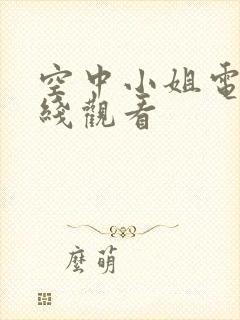 空中小姐電
綫觀看
麼萌